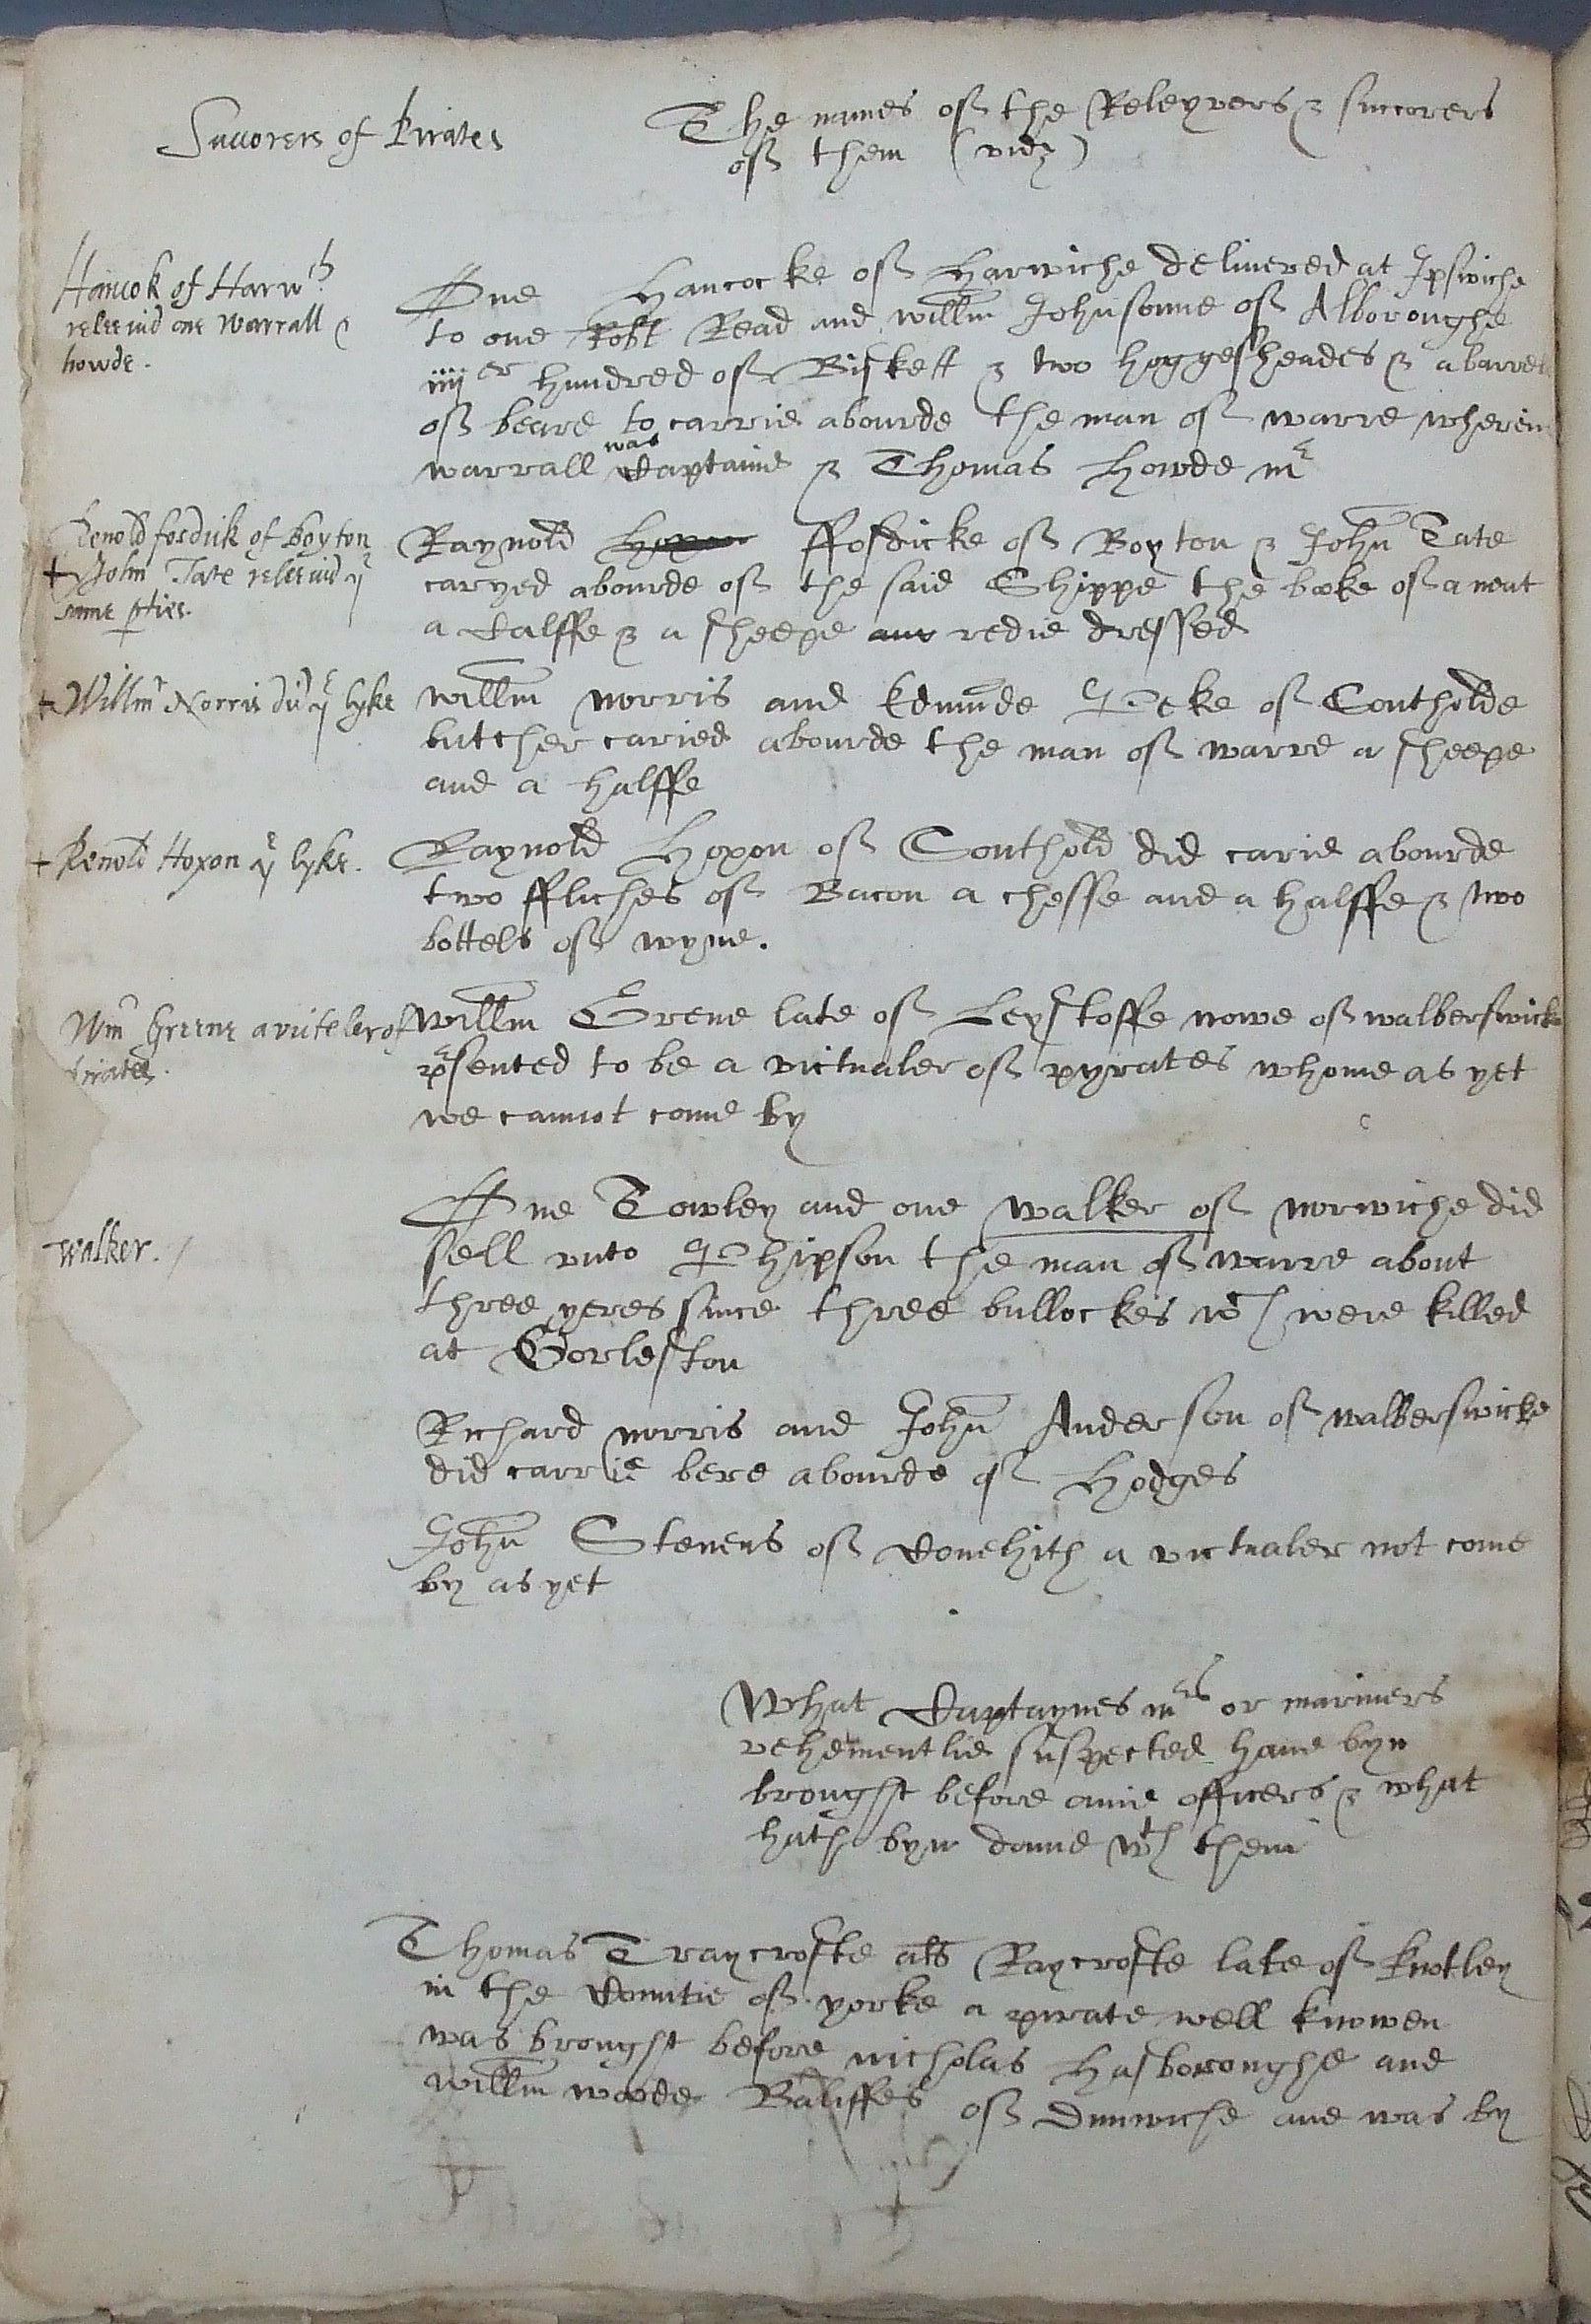 Succorers of Pirates
The names off the Releyvers & succorers
off them (vidz)
Hancok of Harwch
releevid one Warrall &
howde.
One Hancocke off Harwiche delivered at Ipswiche
to one Robt Read and willm Johnsonne off Alboroughe
iiijer hundred off Biskett & two hoggesheades & a barrell
off beare to carrie abourde the man off warre wherein
warrall was Captaine & Thomas Howde mr
Renold fosdick of Boyton
+ & John Tate releevid ye
same pties.
Raynold Hoxon ffosdicke off Boyton & John Tate
caryed abourde off the said Shippe the
off a neut
a Calffe & a sheepe redie dressed
+ Willm Norris did ye lyke
willm norris and Edmunde Peke off Southolde
butcher caried abourde the man off warre a sheepe
and a halffe
+ Renold Hoxon ye lyke.
Raynold Hoxon off Southold did carie abourde
two ffliches off Bacon a chesse and a halffe & two
bottels off wyne.
Wm Greene a viteler of
Pirates.
willm Grene late off Leystoffe nowe off walberswicke
presented to be a victualer off pyrates whome as yet
we cannot come by
Walker.
One Towley and one walker off norwiche did
sell vnto Phipson the man off warre about
three yeres since three bullockes wch were killed
at Gorleston
Richard norris and John Anderson off walberswicke
did carrie bere abourde off Hodges
John Stevens off Covehith a victualer not come
by as yet
What Captaynes mrs or mariners
vehementlie suspected have byn
brought before anie officers & what
hath byn donne wth them
Thomas Traycrofte als Raycrofte late off knotley
in the Countie off yorke a pirate well knowen
was brought before nicholas Hasboroughe and
willm woode Baliffes off Dunwiche and was by